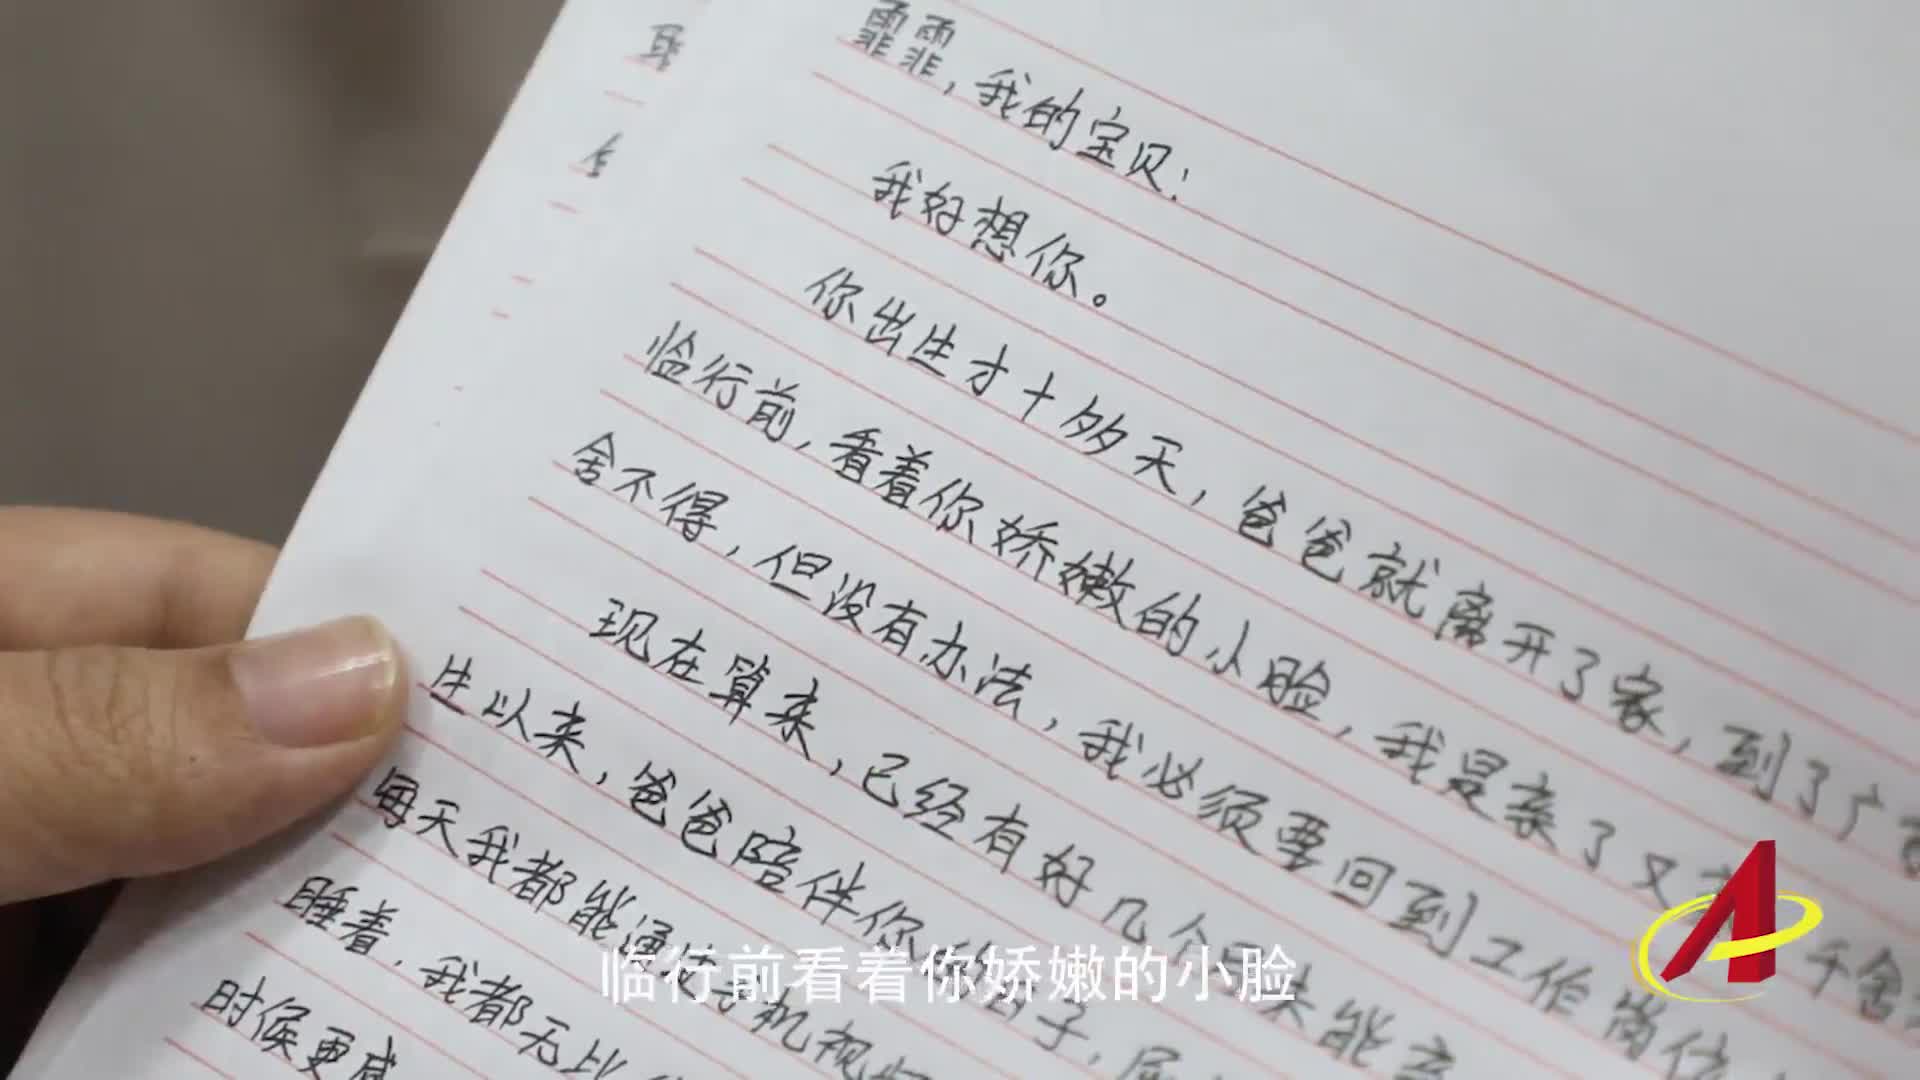 霏霏，我的宝贝：
我好想你。
你出生才十多天，爸爸就离开了家，到了广
临行前，看着你娇嫩的小脸，我是亲了又 千舍
舍不得，但没有办法，我必须要回到工作岗位
现在算来，已经有好几个 未能
生以来，爸爸陪伴你的 子，屈
每天我都能通过手机视频
睡着，我都无比
时候更感
临行前看着你娇嫩的小脸